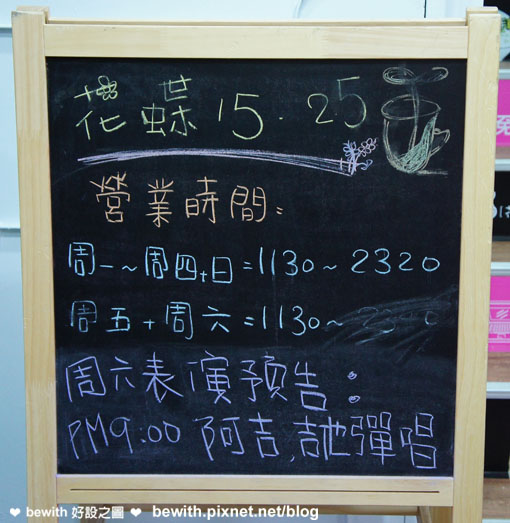 花蝶 15.25
營業時間:
周一~周四+日=1130~2320
周五+周六=1130~
周六表演預告:
PM9:00 阿吉,吉他彈唱
❤ bewith 好設之圖 ❤ bewith.pixnet.net/blog